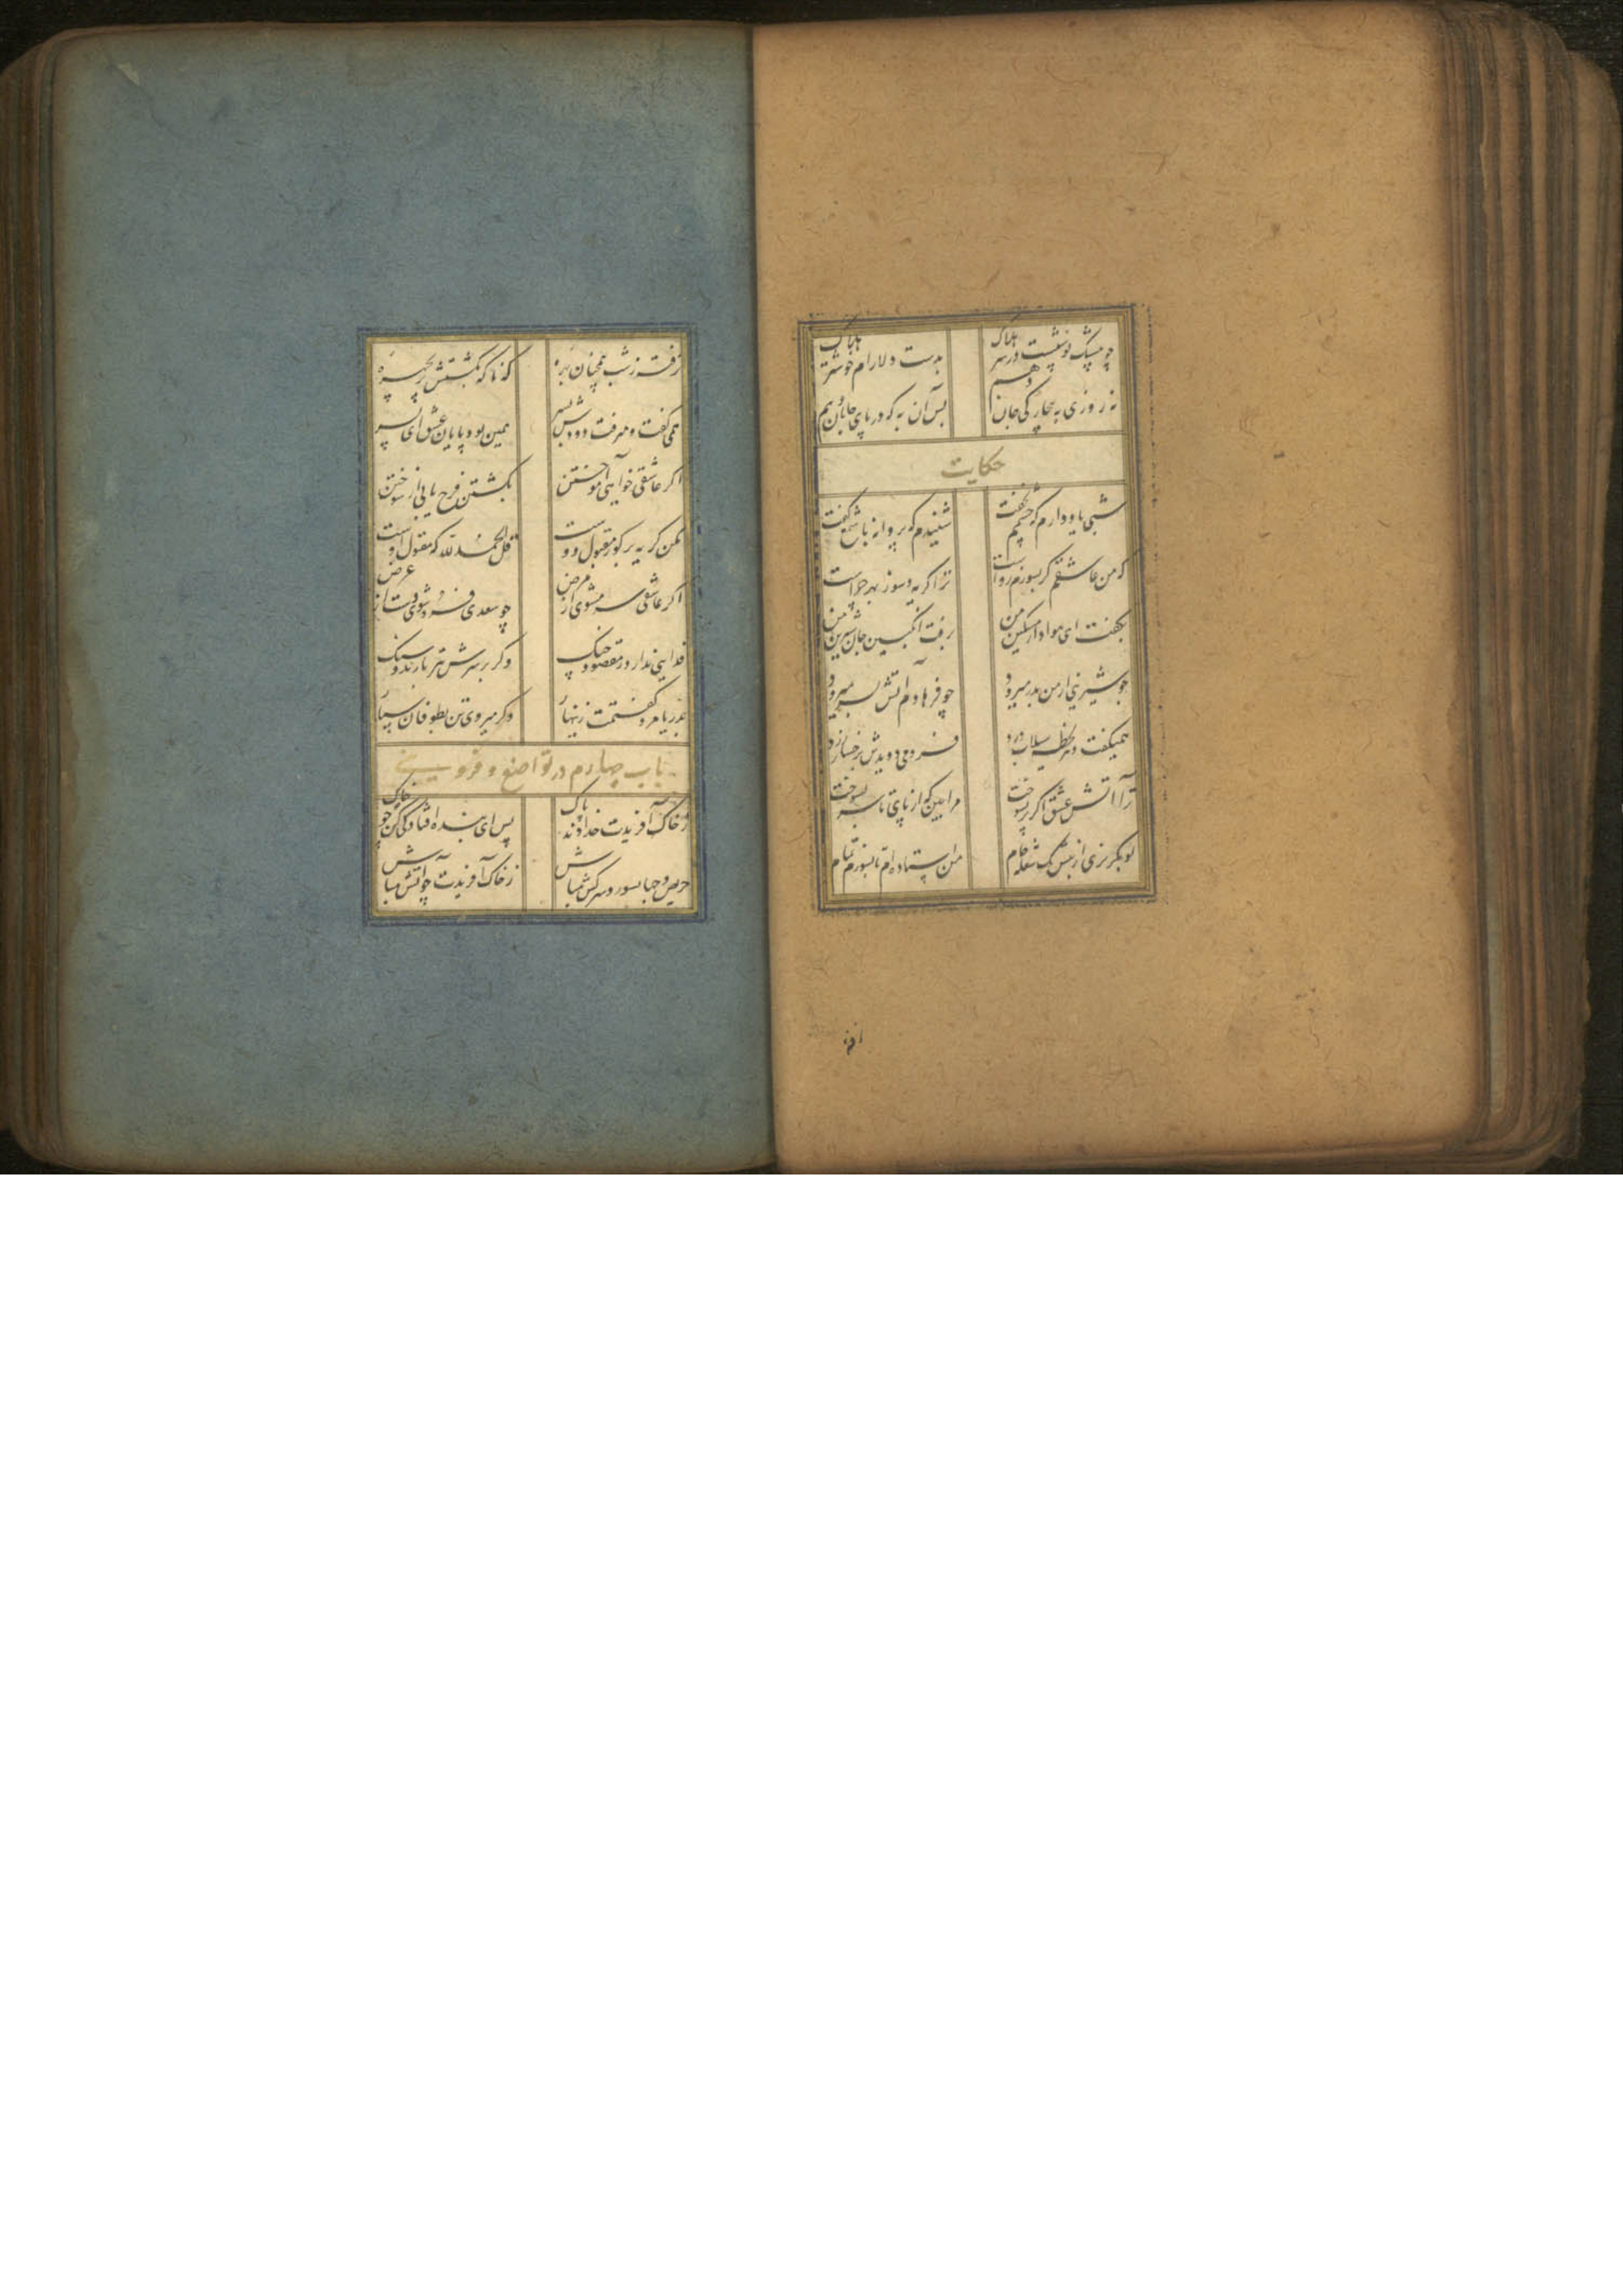 چو بیشک نوشتست در سر هلاک
بدست دلارام خوشتر هلاک
نه روزی به بیچارگی جان دهیم
بس آن به که در پای جانان دهیم
حکایت
شبی یاد دارم که چشمم نخفت
شنیدم که پروانه با شمع گفت
که من عاشقم گر بسوزم رواست
ترا گریه و سوز بهر چراست
بگفت ای هوادار مسکین من
برفت انگبین جان شیرین من
چو شیرینی از من بدر میرود
چو فرهادم آتش بسر میرود
همیگفت و هر لحظه سیلاب درد
فرو می دویدش برخسار زرد
ترا آتش عشق اگر پر بسوخت
مرا بین که از پای تا سر بسوخت
تو بگریزی از پیش یک شعله خام
من استاده ام تا بسوزم تمام
نرفته ز شب همچنان بهره
که ناگه بکشتش پریچهره
همی گفت و میرفت دودش بسر
همین بود پایان عشق ای پسر
اگر عاشقی خواهی آموختن
بکشتن فرح یابی از سوختن
مکن گریه بر گور مقبول دوست
قل الحمد لله که مقبول اوست
اگر عاشقی سر مشوی از مرض
چو سعدی فرو شوی دست از غرض
فدایی ندارد ز مقصود چنگ
وگر بر سرش تیر بارند و سنگ
بدریا مرو گفتمت زینهار
وگر میروی تن بطوفان سپار
باب چهارم در تواضع و فروتنی
ز خاک آفریدت خداوند پاک
پس ای بنده افتادگی کن چو خاک
حریص و جهانسوز و سرکش مباش
ز خاک آفریدت چو آتش مباش